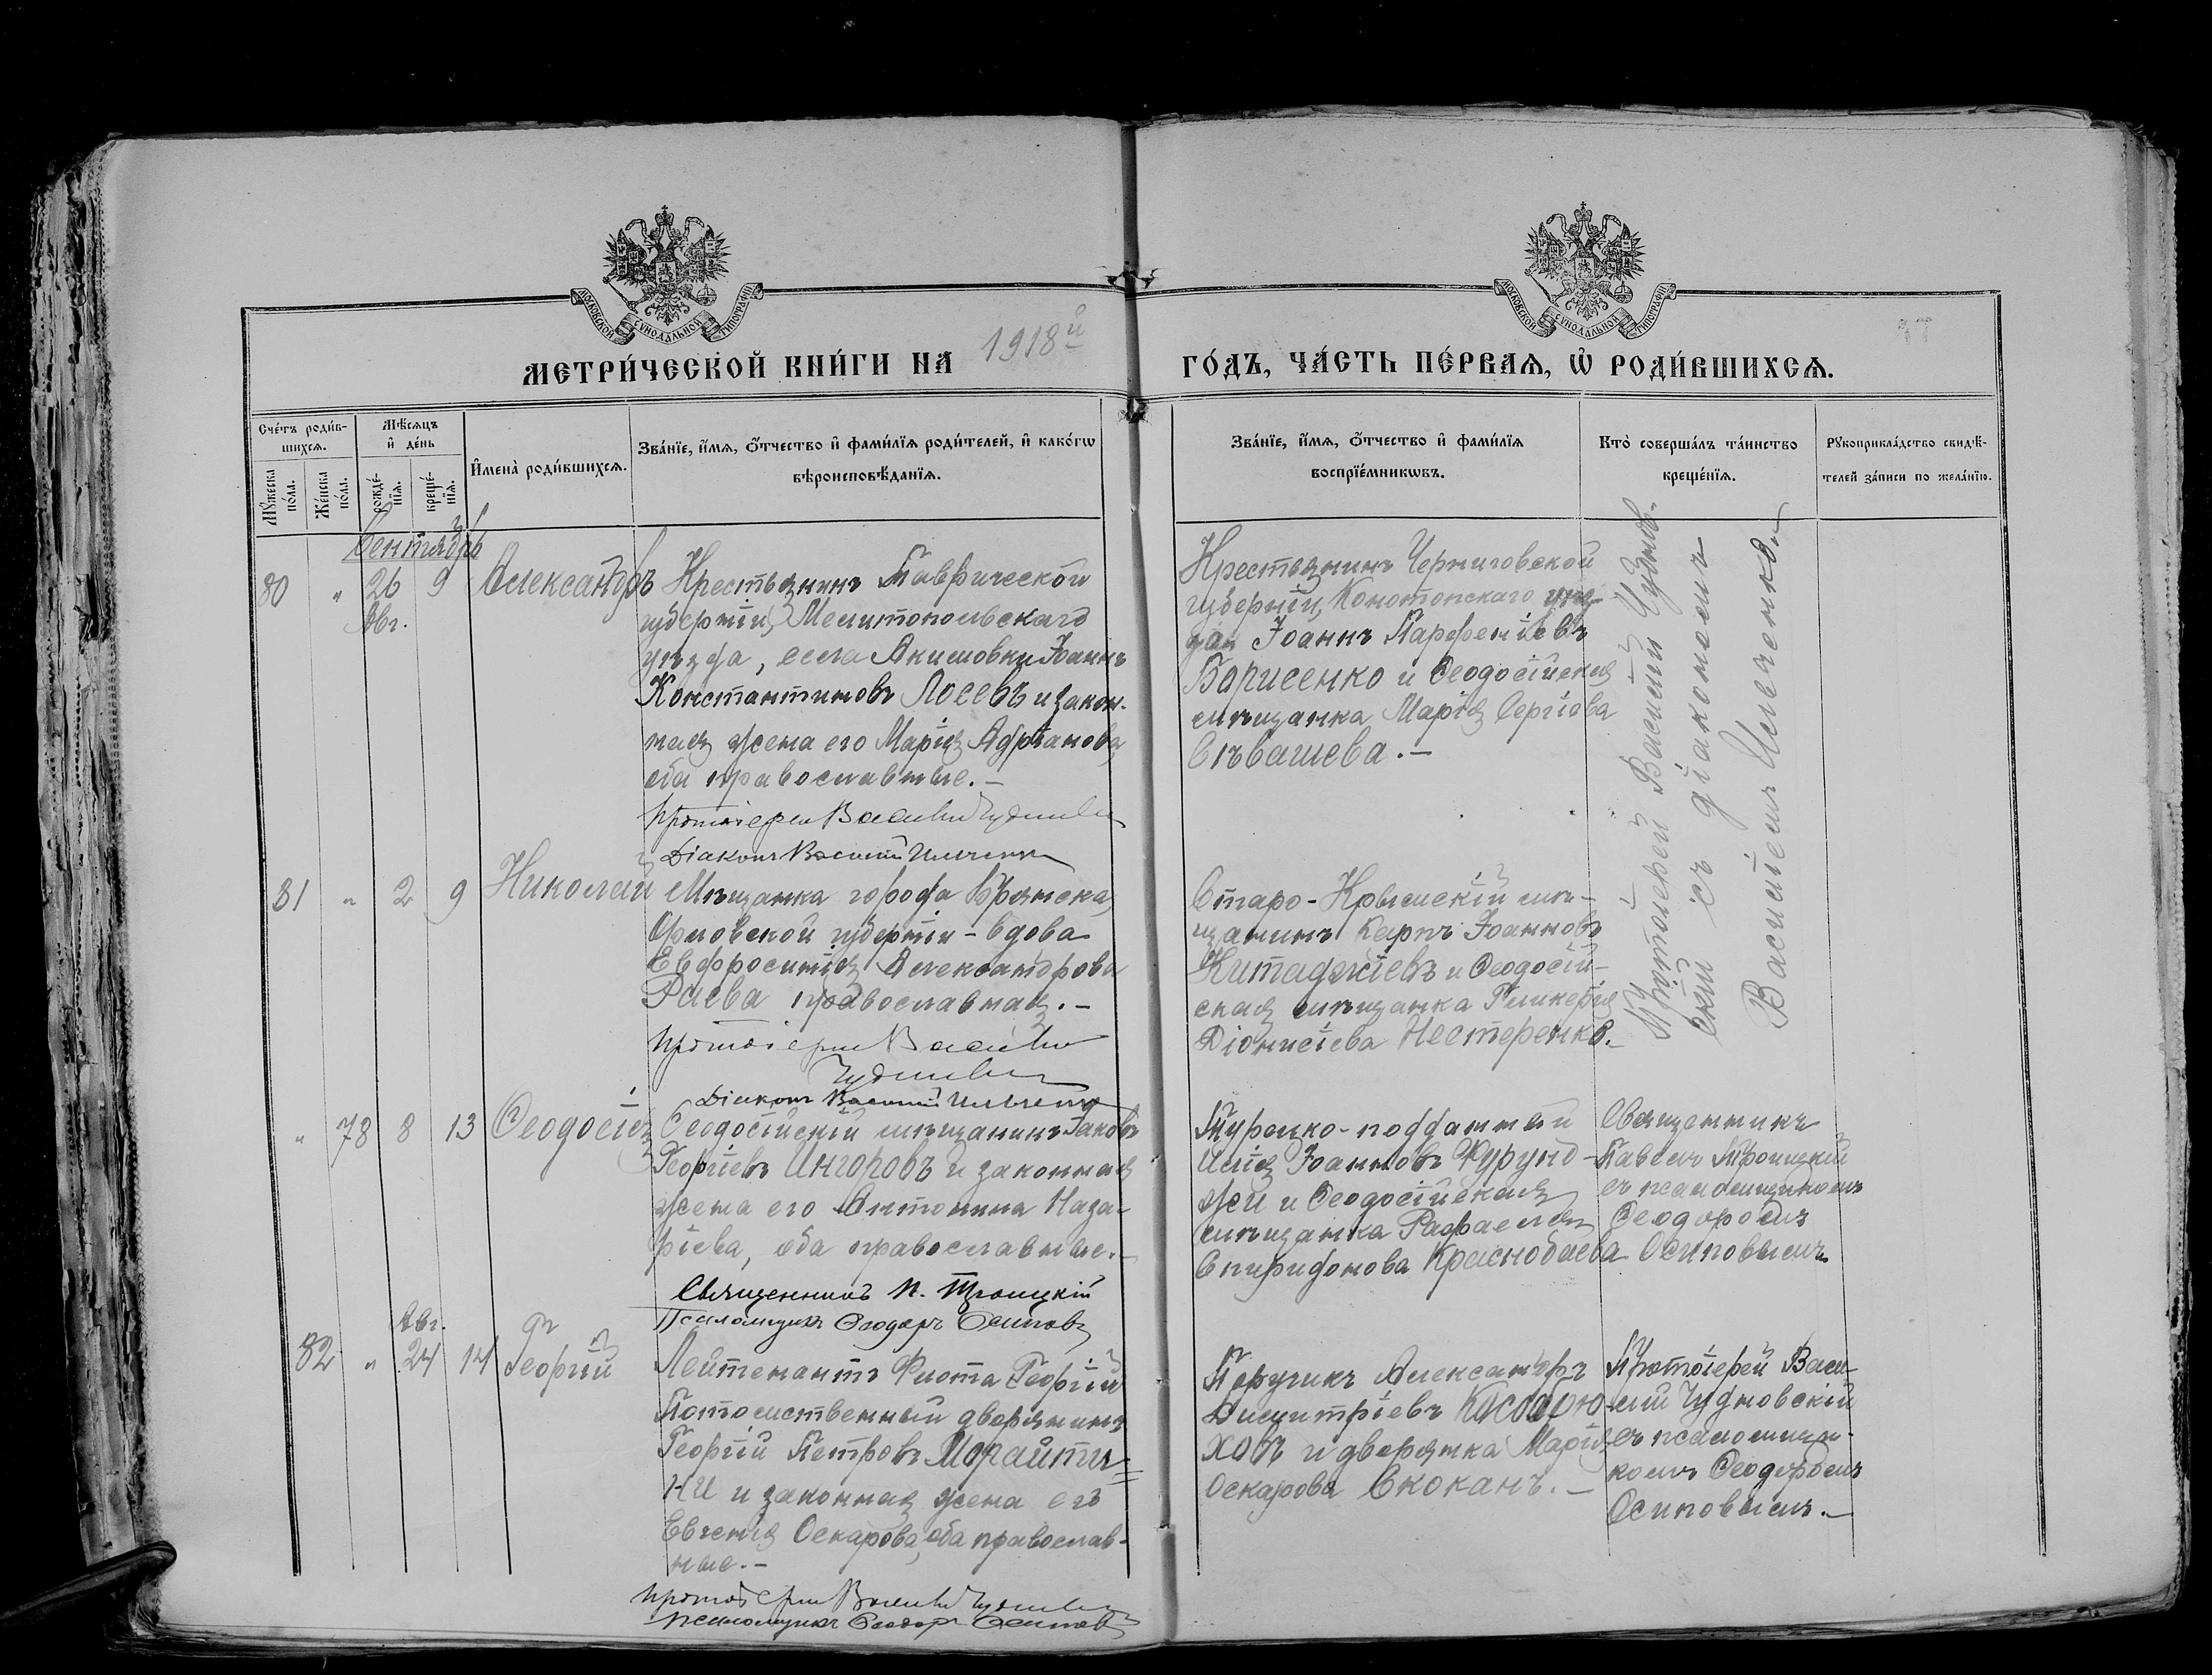 МОСКОВСКОЙ СѴНОДАЛЬНОЙ ТИПОГРАФІИ
МОСКОВСКОЙ СѴНОДАЛЬНОЙ ТИПОГРАФІИ
МЕТРИ́ЧЕСКОЙ КНИ́ГИ НА 1918й ГО́ДЪ, ЧА́СТЬ ПЕ́РВАѦ, Ѡ҆ РОДИ́ВШИХСѦ.
Сче́тъ роди́в-
шихсѧ.
Мꙋ́жеска по́ла.
Же́нска по́ла.
Мѣ́сѧцъ
и҆ де́нь
рожде́-
нїѧ.
креще́-
нїѧ.
И҆мена̀ роди́вшихсѧ.
Зва́нїе, и҆́мѧ, ѻ҆́тчество и҆ фами́лїѧ роди́телей, и҆ како́гѡ
вѣроисповѣ́данїѧ.
Зва́нїе, и҆́мѧ, ѻ҆́тчество и҆ фами́лїѧ
воспрїе́мникѡвъ.
Кто̀ соверша́лъ та́инство
креще́нїѧ.
Рꙋкоприкла́дство свидѣ́-
телей за́писи по жела́нїю.
Сентябрь
80 " 26 Авг. 9 Александръ
Крестьянинъ Таврической
губерніи, Мелитопольскаго
уѣзда, села Акимовки Іоаннъ
Константиновъ Лосевъ и закон-
ная жена его Марія Адріанова,
оба православные.-
Протоіерей Василій Чудновскій
Діаконъ Василій Ильченко
Крестьянинъ Черниговской
губерніи, Конотопскаго уѣз-
да Іоаннъ Парфеніевъ
Борисенко и Ѳеодосійская
мѣщанка Марія Сергіева
Сѣвашева.-
Протоіерей Василій Чуднов-
скій съ діакономъ
Василіемъ Ильченко.-
81 " 2 9 Николай
Мѣщанка города Брянска,
Орловской губерніи - вдова
Евфросинія Александрова
Раева православная.-
Протоіерей Василій
Чудновскій
Діаконъ Василій Ильченко
Старо-Крымскій мѣ-
щанинъ Карпъ Іоанновъ
Китаджіевъ и Ѳеодосій-
ская мѣщанка Гликерія
Діонисіева Нестеренко.-
" 78 8 13 Ѳеодосія
Ѳеодосійскій мѣщанинъ Іаковъ
Георгіевъ Ингоровъ и законная
жена его Антонина Наза-
ріева, оба православные.-
Священникъ П. Троицкій
Псаломщикъ Ѳеодоръ Осиповъ
Турецко-подданный
Илія Іоанновъ Фурунд-
жи и Ѳеодосійская
мѣщанка Рафаела
Спиридонова Краснобаева
Священникъ
Павелъ Троицкій
съ псаломщикомъ
Ѳеодоромъ
Осиповымъ
82 " Авг. 24 14 Георгій
Лейтенантъ Флота Георгій
Потомственный дворянинъ
Георгій Петровъ Морайти-
ни и законная жена его
Евгенія Оскарова, оба православ-
ные.-
Протоіерей Василій Чудновскій
Псаломщикъ Ѳеодоръ Осиповъ
Поручикъ Александръ
Димитріевъ
ховъ и дворянка Марія
Оскарова Скоканъ.-
Протоіерей Васи-
лій Чудновскій
съ псаломщи-
комъ Ѳеодоромъ
Осиповымъ.-